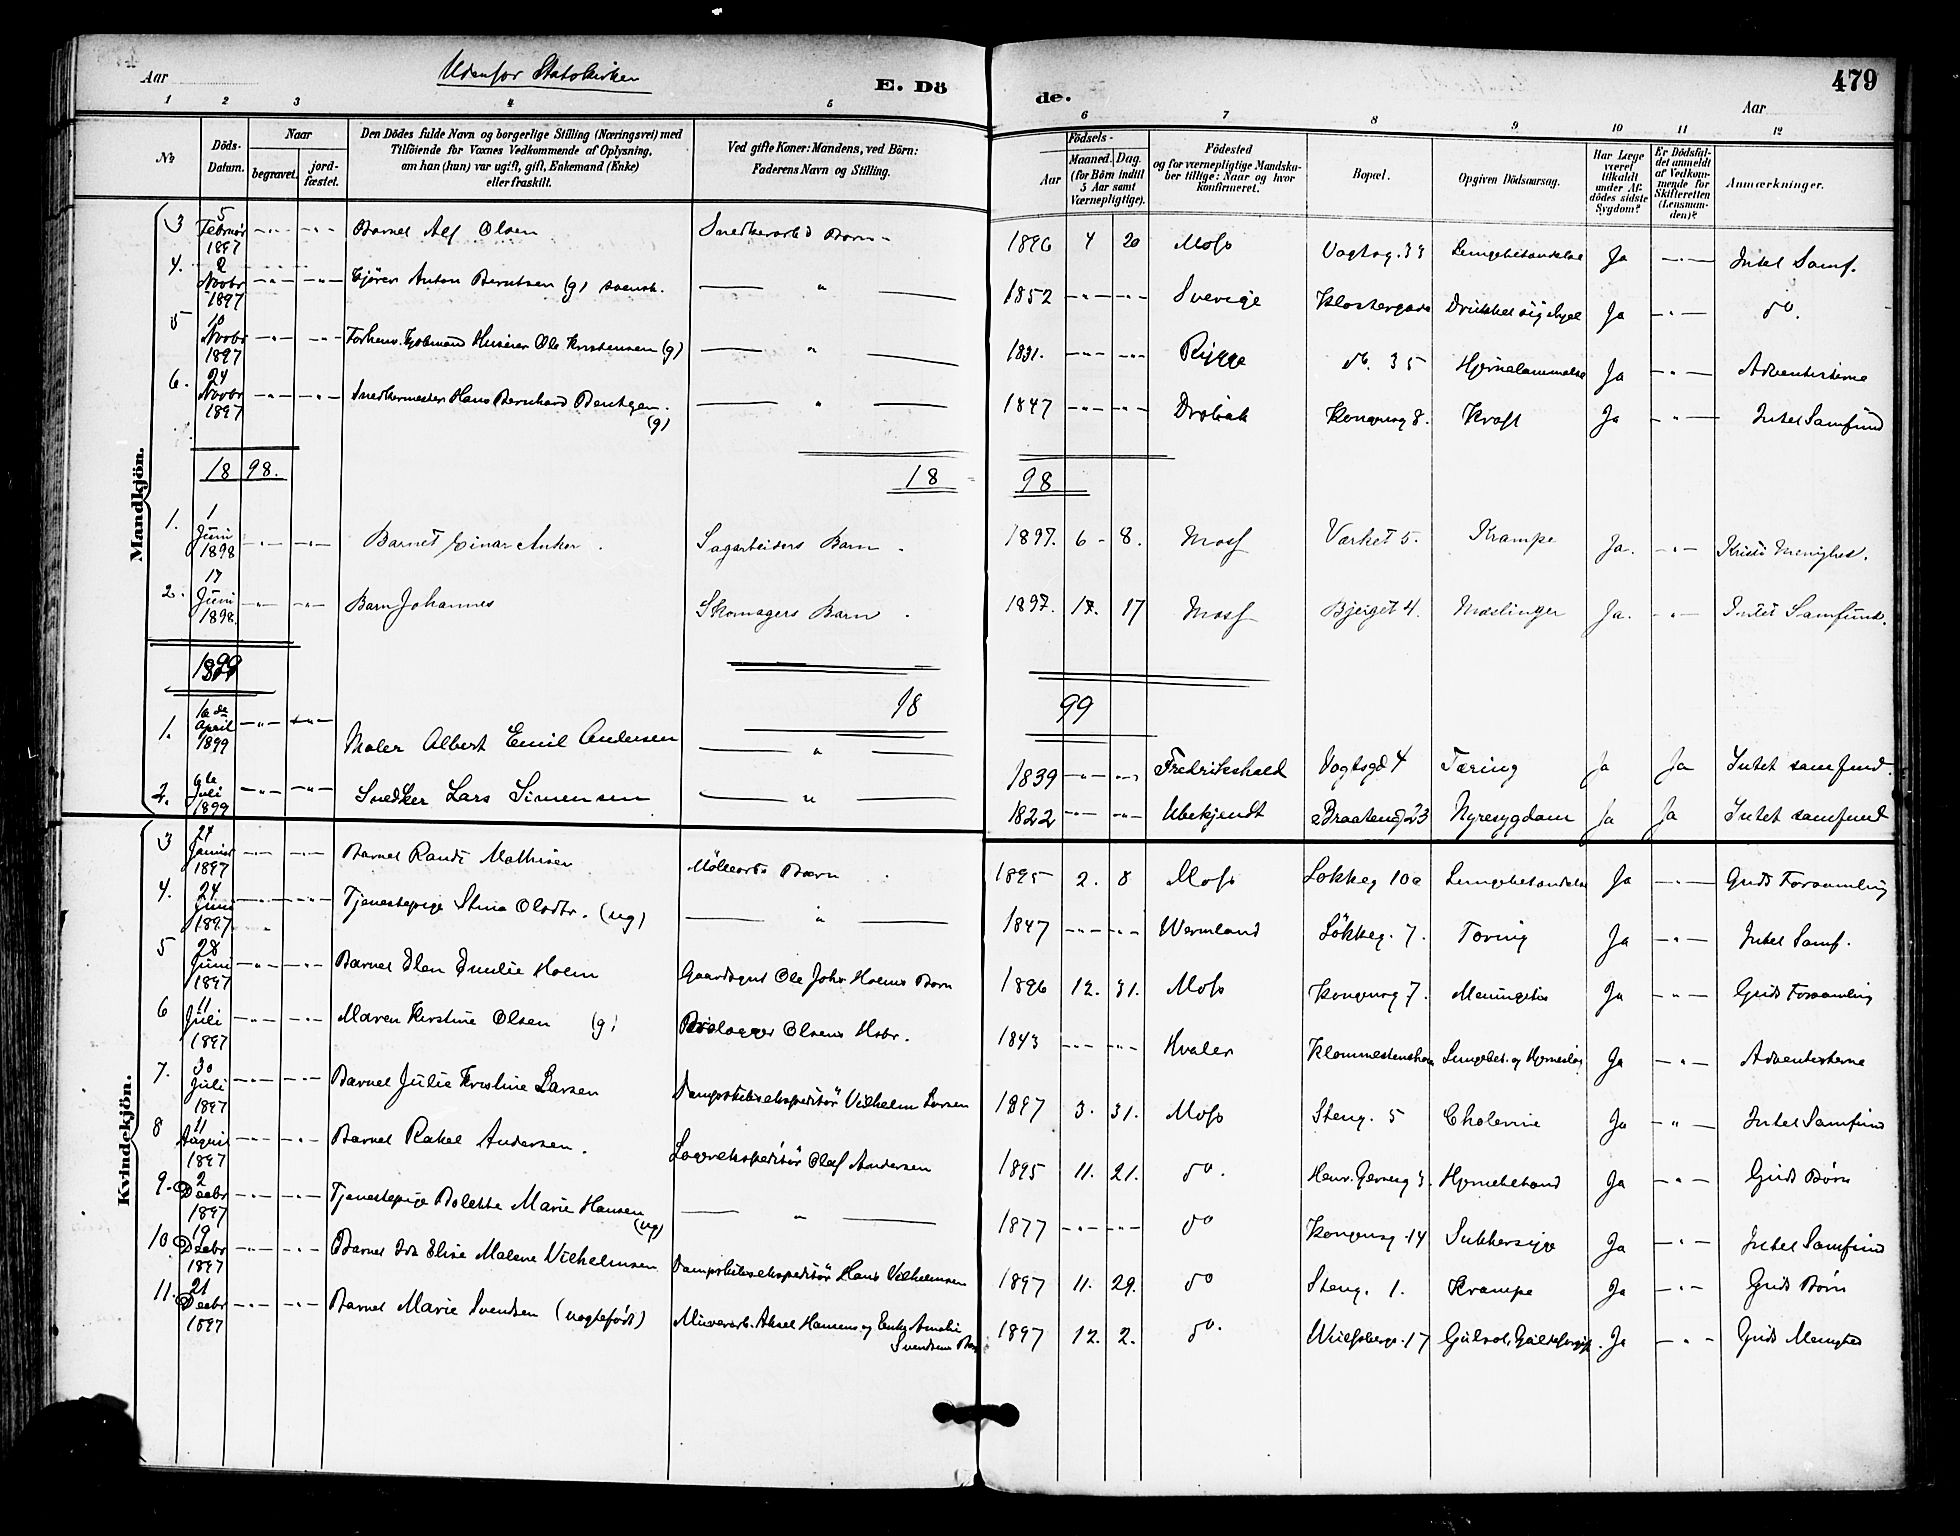 Aar
Udenfor Statskirken
E. Dö
de.
Aar
479
1 2 3 4 5 6 7 8 9 10 11 12
No
Döds-Datum.
Naar
begravet.
jord-fæstet.
Den Dödes fulde Navn og borgerlige Stilling (Næringsvei) med
Tilföiende for Voxnes Vedkommende af Oplysning,
om han (hun) var ugift, gift, Enkemand (Enke)
eller fraskilt.
Ved gifte Koner: Mandens, ved Börn:
Faderens Navn og Stilling.
Födsels-
Aar
Maaned. Dag.
(for Börn indtil
5 Aar samt
Værnepligtige).
Födested
og for værnepligtige Mandska-
ber tillige: Naar og hvor
konfirmeret.
Bopæl.
Opgiven Dödsaarsag.
Har Læge
været
tilkaldt
under Af-
dödes sidste
Sygdom?
Er Dödsfal-
det anmeldt
af Vedkom-
mende for
Skifteretten
(Lensman-
den)?
Anmærkninger.
Mandkjön.
3 5 Februar 1897 Barnet Alf Olsen Snedkerarb.s Barn 1896 4 20 Moss Vogtsg. 33 Lungebetændelse Ja Intet Samf.
4. 2 Novbr 1897 Anton Berntsen (g) svensk. " 1852 Sverige Klostergade Ja do.
5 10 Novbr 1897 Ole Kristensen (g) " 1831. Rygge do. 35 Hjernelammelse Ja Adventisterne
6. 24 Novbr 1897 Snedkermester Hans Bernhard Bentzen. (g) " 1847 Drøbak Kongensg 8. Kræft Ja Intet Samfund
1898. 18 98
1. 1 Juni 1898 Barnet Einar Anker. Sagarbeiders Barn. 1897. 6 8. Moss Værket 5. Krampe Ja. Kristi Menighed.
2. 17 Juni 1898. Barn Johannes Skomagers Barn. 1897. 17. 17 Moss Bjerget 4. Mæslinger Ja. Intet Samfund.
1899 18 99
1. 16de April 1899 Maler Albert Emil Andersen " 1839 Fredrikshald Vogtsgd 4 Tæring Ja Ja Intet samfund.
2. Juli 1899 Snedker Lars Simensen " 1822 Ubekjendt Braateng. 23 Nyresygdom Ja Ja Intet samfund
Kvindekjön.
3 27 Januar 1897 Barnet Randi Mathisen Möllearb.s Barn 1895 2. 8 Moss Løkkeg 10a Lungebetændelse Ja Guds Forsamling
4. 24 Juni 1897 Tjenestepige Stina Olsdtr. (ug) " 1847 Wermland Løkkeg. 7. Tæring Ja Intet Samf.
5 28 Juni 1897 Barnet Elen Emilie Holm Gaardbgers Ole Johs Holms Barn 1896 12. 31. Moss Kongensg 7. Meningitis Ja Guds Forsamling
6 11 Juli 1897 Maren Kirstine Olsen (g) Olsens Hstr. 1843 Hvaler Lungebet. og Ja Adventisterne
7. 30 Juli 1897 Barnet Julie Kristine Larsen Dampskibsekspeditör Vilhelm Larsen 1897 3. 31. Moss Steng. 5 Cholerine Ja Intet Samfund
8 11 August 1897 Barnet Rakel Andersen. Olaf Andersen 1895 11. 21. do. Henr. Gernersg 3. Hjernebetænd Ja Guds Børn
9. 2 Decbr 1897 Tjenestepige Bolette Marie Hansen (ug) " 1877 do Kongensg. 14 Sukkersyge Ja Intet Samfund
10. 19 Decbr 1897 Barnet Ida Elise Malene Vilhelmsen Dampskibsekspeditör Hans Vilhelmsen 1897 11. 29. do Steng. 1. Krampe Ja Guds Børn
11. 21 Decbr 1897 Barnet Marie Svendsen (uægtefødt) Murerarb. Aksel Hansens og Enke Amalie Svendsens Barn 1897 12. 2. do. 17 Ja Guds Menighed